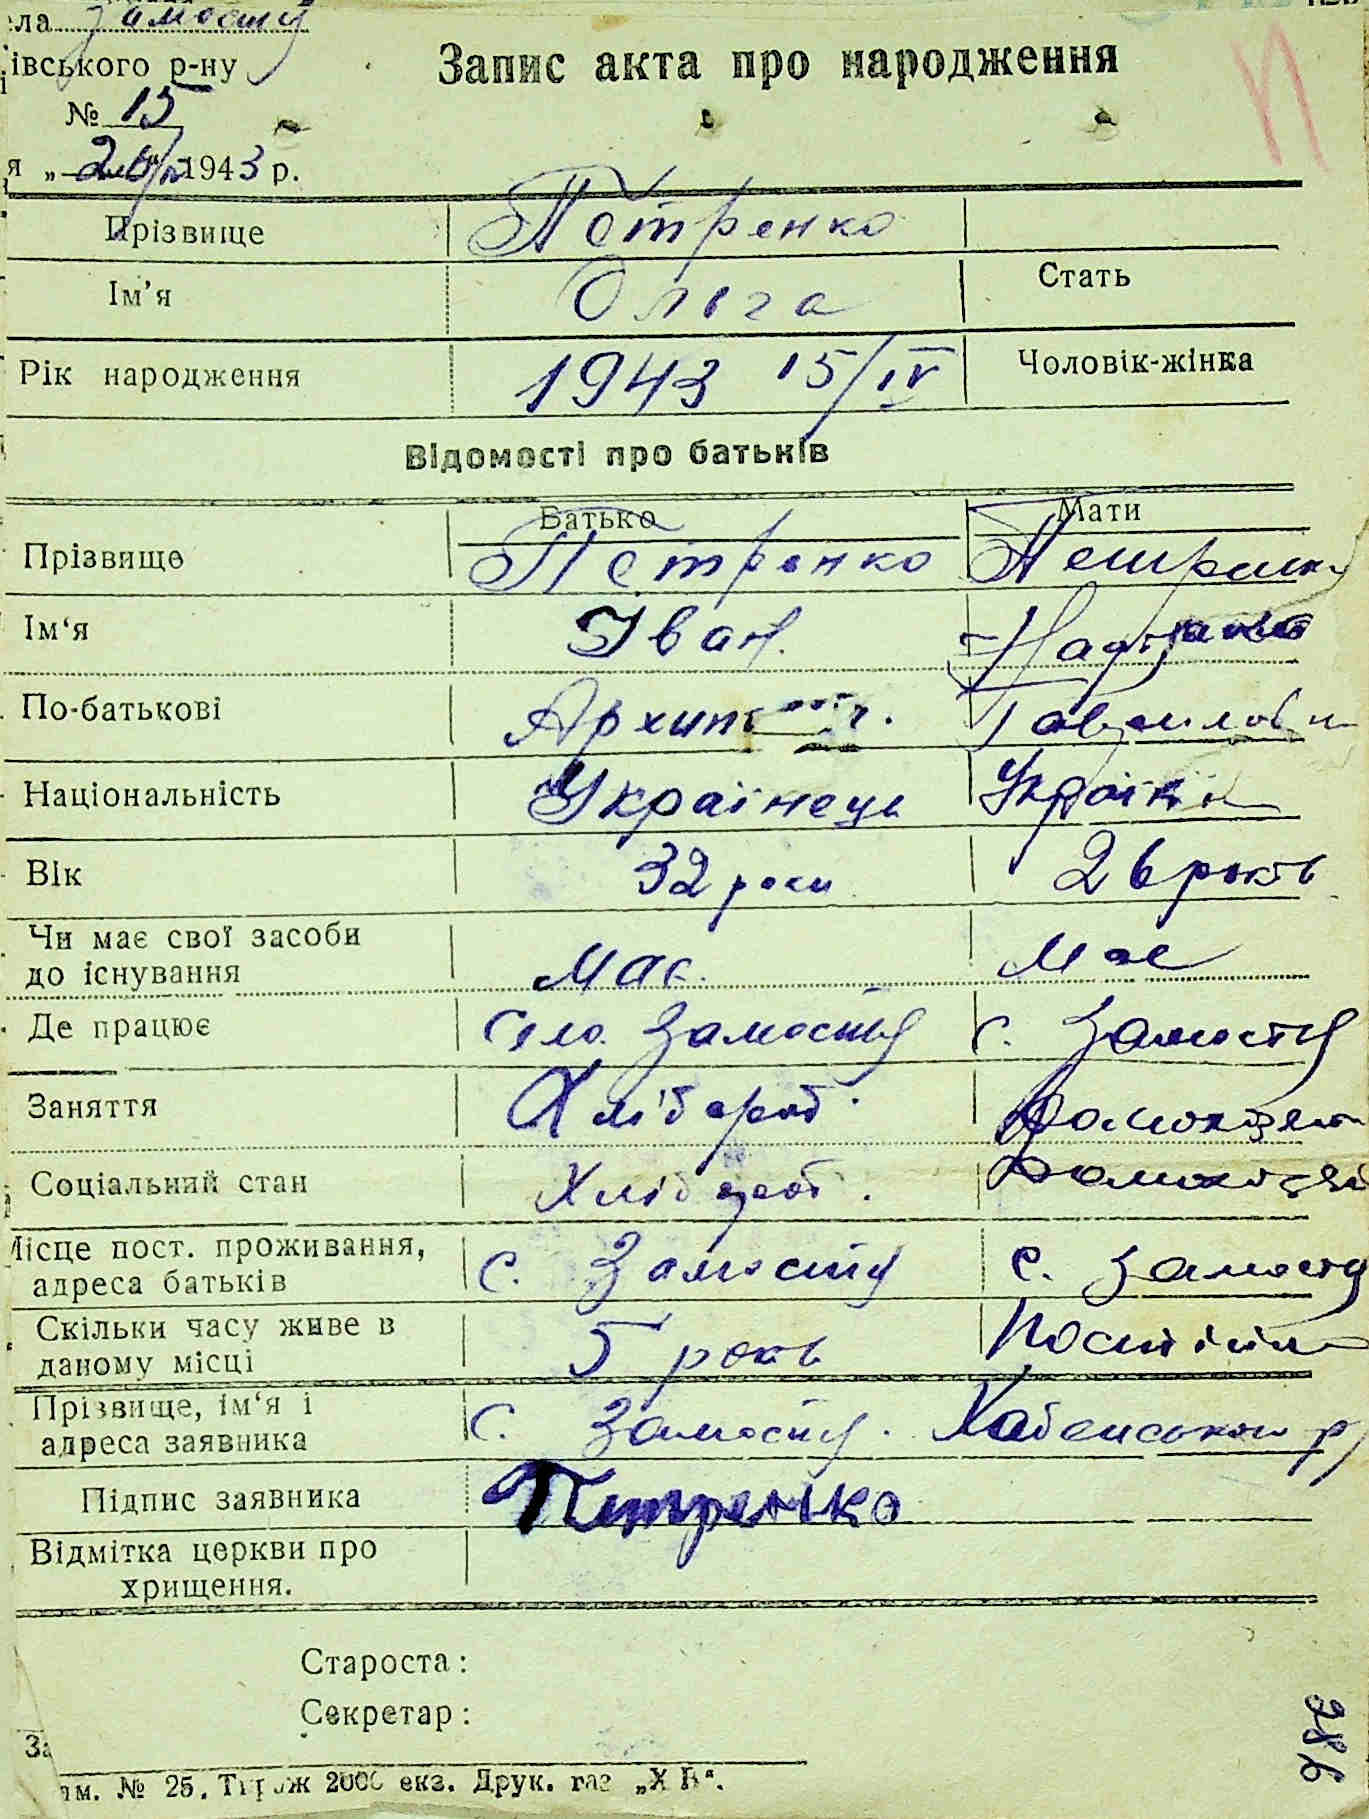 ела Замостя
івського р-ну
Запис акта про народження
№ 15
я „ 1943 р.
Прізвище Петренко
Ім'я Ольга Стать
Рік народження 1943 15/IV Чоловік-жінка
Відомості про батьків
Батько Мати
Прізвище Петренко Петренко
Ім'я Іван
По-батькові
Національність Українець Українка
Вік 32 роки 26 років
Чи має свої засоби
до існування має має
Де працює село Замостя с. Замостя
Заняття Хлібороб
Соціальний стан Хлібороб
Місце пост. проживання,
адреса батьків с. Замостя с. Замостя
Скільки часу живе в
даному місці 5 років Постійно
Прізвище, ім'я і
адреса заявника с. Замостя. Хабенського р
Підпис заявника Петренко
Відмітка церкви про
хрищення.
Староста:
Секретар:
286
За
ам. № 25. Тираж 2000 екз. Друк. газ „Х